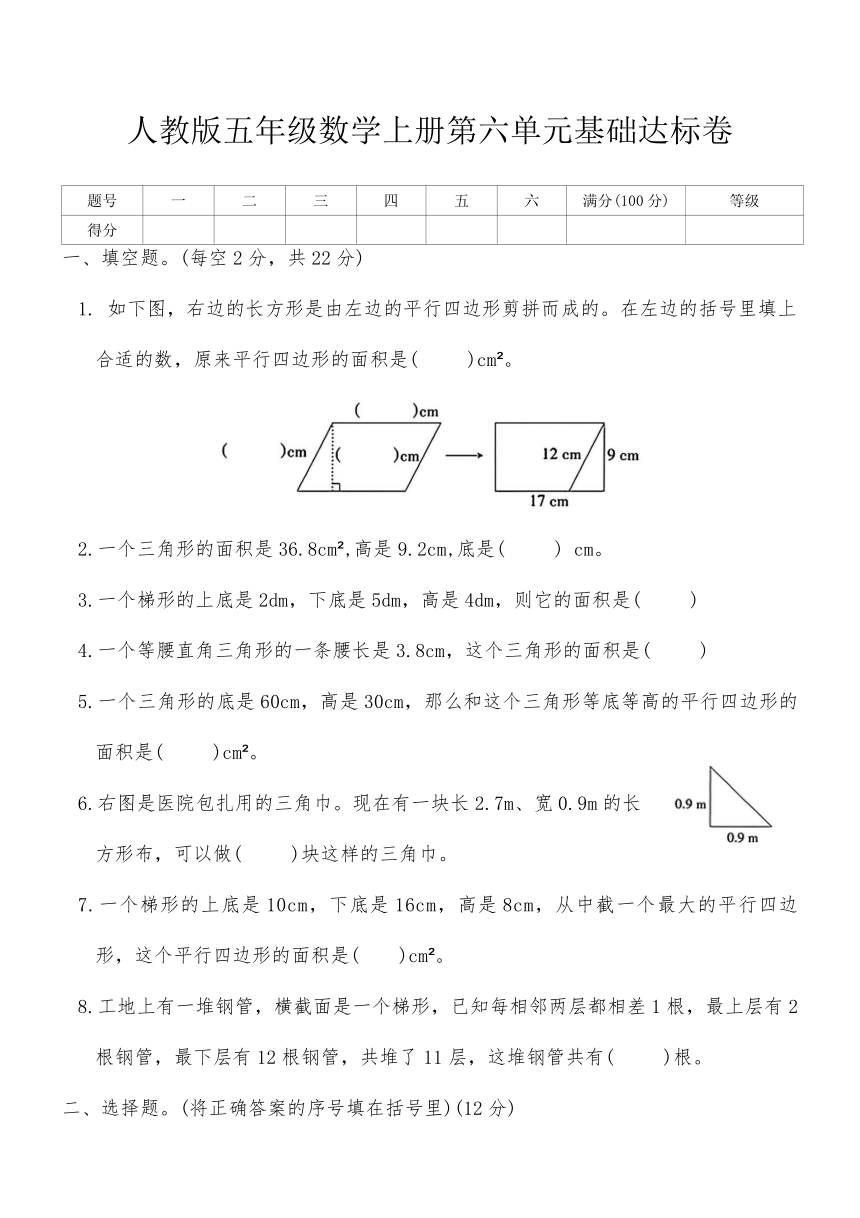 人教版五年级数学上册第六单元基础达标卷
题号 一 二 三 四 五 六 满分(100分) 等级
得分
一、填空题。(每空2分，共22分)
1. 如下图，右边的长方形是由左边的平行四边形剪拼而成的。在左边的括号里填上
合适的数，原来平行四边形的面积是(    )cm²。
(    )cm
(    )cm (    )cm 12 cm 9 cm
17 cm
2.一个三角形的面积是36.8cm²,高是9.2cm,底是(    ) cm。
3.一个梯形的上底是2dm，下底是5dm，高是4dm，则它的面积是(    )
4.一个等腰直角三角形的一条腰长是3.8cm，这个三角形的面积是(    )
5.一个三角形的底是60cm，高是30cm，那么和这个三角形等底等高的平行四边形的
面积是(    )cm²。
6.右图是医院包扎用的三角巾。现在有一块长2.7m、宽0.9m的长
方形布，可以做(    )块这样的三角巾。
0.9 m
0.9 m
7.一个梯形的上底是10cm，下底是16cm，高是8cm，从中截一个最大的平行四边
形，这个平行四边形的面积是(    )cm²。
8.工地上有一堆钢管，横截面是一个梯形，已知每相邻两层都相差1根，最上层有2
根钢管，最下层有12根钢管，共堆了11层，这堆钢管共有(    )根。
二、选择题。(将正确答案的序号填在括号里)(12分)